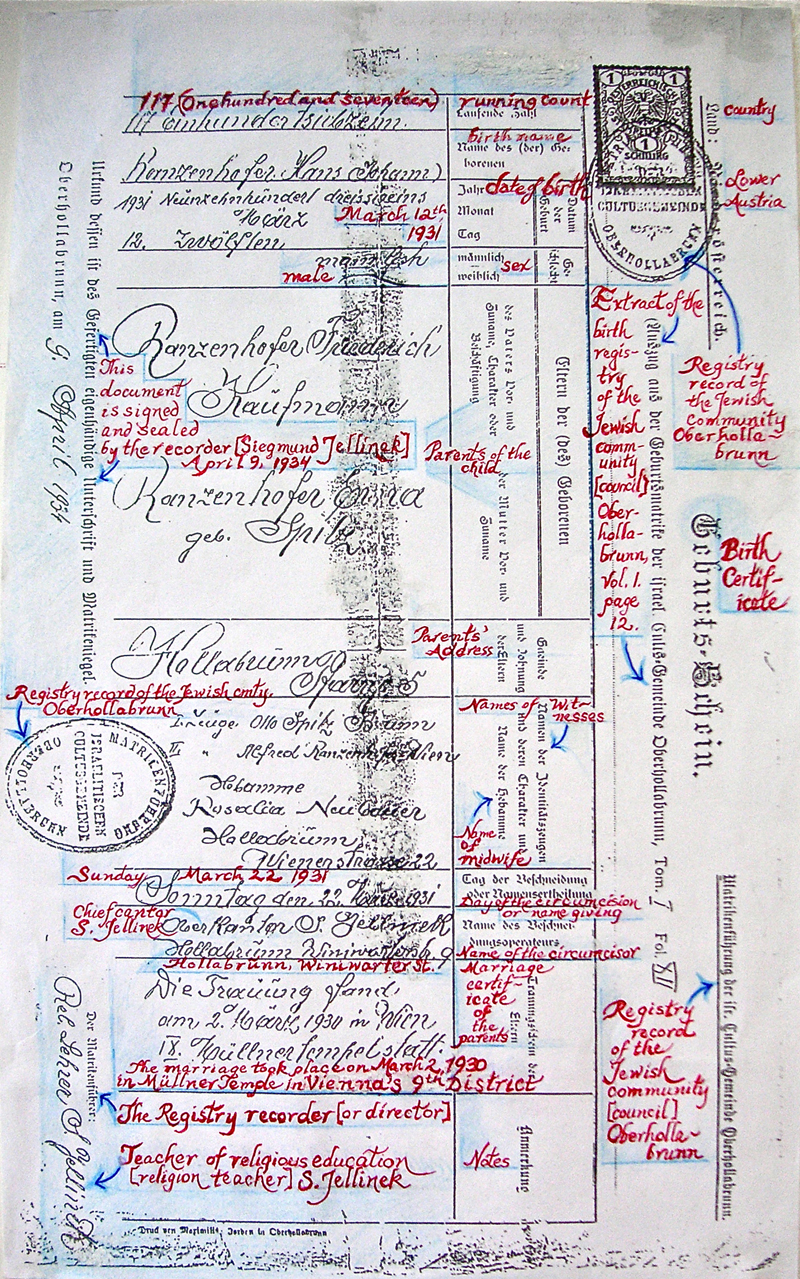 117 (One hundred and seventeen)
running count
Laufende Zahl
117 Einhundertsiebzehn.
birth name
Name des (der) Ge-
borenen
Ranzenhofer Hans (Johann)
date of birth
Jahr
Monat
Tag
Datum
der
Geburt
1931 Neunzehnhundert dreissigeins
März
12. Zwölften
March 12th
1931
männlich
weiblich
sex
Ge-
schlecht
männlich
male
Ranzenhofer Friedrich
Kaufmann
des Vaters Vor- und
Zuname, Charakter oder
Beschäftigung
Eltern der (des) Geborenen
Parents of the
child
Ranzenhofer Emma
geb. Spitz
der Mutter Vor- und
Zuname
Parents'
Address
Gemeinde
und Wohnung
der Eltern
Hollabrunn
Names of Wit-
nesses
Namen der Identitätszeugen
und deren Charakter und
Name der Hebamme
Zeuge Otto Spitz
II " Alfred Ranzenhofer Wien
Hebamme
Rosalia Neubauer
Hollabrunn
Wienerstrasse 22
Name
of
midwife
Sunday March 22 1931
Sonntag den 22. März 1931
Tag der Beschneidung
oder Namensertheilung
Day of the circumcision
or name giving
Chief cantor
S. Jellinek
Oberkantor S. Jellinek
Name des Beschnei-
dungsoperateurs
Name of the circumcisor
Hollabrunn Winiwarterstr. 9
Hollabrunn, Winiwarter St.
Die Trauung fand
am 2. März 1930 in Wien
IX. Müllnertempel statt.
Marriage
certif-
icate
of
the
parents
Trauungsschein der
Eltern
The marriage took place on March 2, 1930
in Müllner Temple in Vienna's 9th District
The Registry recorder [or director]
Teacher of religious education
[religion teacher] S. Jellinek
Notes
Anmerkung
Urkund dessen ist des Gefertigten eigenhändige Unterschrift und Matrikensiegel.
Oberhollabrunn, am 9. April 1934
This
document
is signed
and sealed
by the recorder [Siegmund Jellinek]
April 9, 1934
Registry record of the Jewish cmty.
Oberhollabrunn
MATRIKENFÜHRER
DER
ISRAELITISCHEN
CULTUSGEMEINDE
OBERHOLLABRUNN
Der Matrikenführer:
Rel. Lehrer S. Jellinek
Land: Niederösterreich.
country
Lower
Austria
1 1
ÖSTERREICH
1
SCHILLING
ISRAELITISCHEN
CULTUSGEMEINDE
OBERHOLLABRUNN
Registry
record of
the Jewish
community
Oberholla-
brunn
Extract of the
birth
regis-
try
of the
Jewish
comm-
unity
[council]
Ober-
holla-
brunn,
Vol. 1.
page
12.
(Auszug aus der Geburtsmatrike der israel. Cults-Gemeinde Oberhollabrunn, Tom. I Fol. XII
Geburts-Schein.
Birth
Certif-
icate
Matrikenführung der isr. Cultus-Gemeinde Oberhollabrunn.
Registry
record
of the
Jewish
community
[council]
Oberholla-
brunn
Druck von Oberhollabrunn